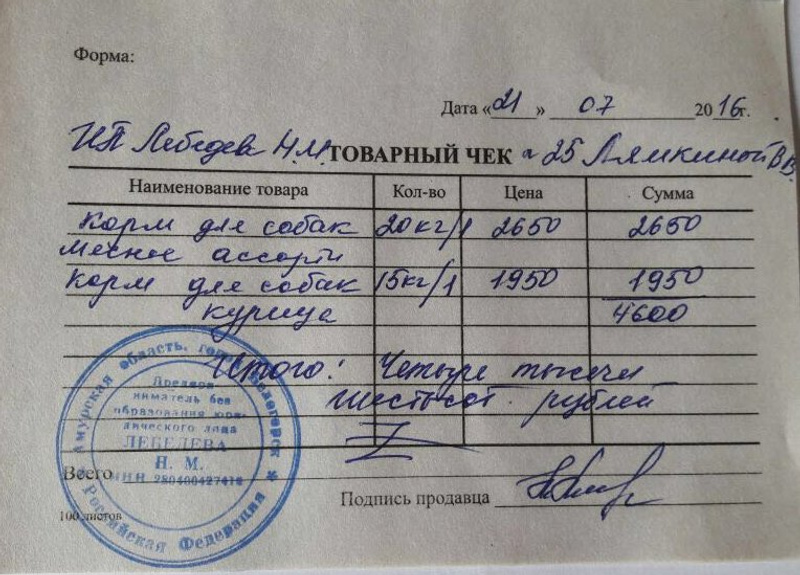 Форма:
Дата «21» 07 2016г.
ИП Лебедева Н.М. ТОВАРНЫЙ ЧЕК 25 Лямкиной В.В.
Наименование товара Кол-во Цена Сумма
Корм для собак 20кг/1 2650 2650
мясное ассорти
Корм для собак 15кг/1 1950 1950
курица 4600
Итого: Четыре тысячи
шестьсот рублей
Амурская область, город Белогорск * Российская Федерация *
Предпри
ниматель без
образования юри-
дического лица
ЛЕБЕДЕВА
Н. М.
ИНН 280400427418
Всего
Подпись продавца
100 листов